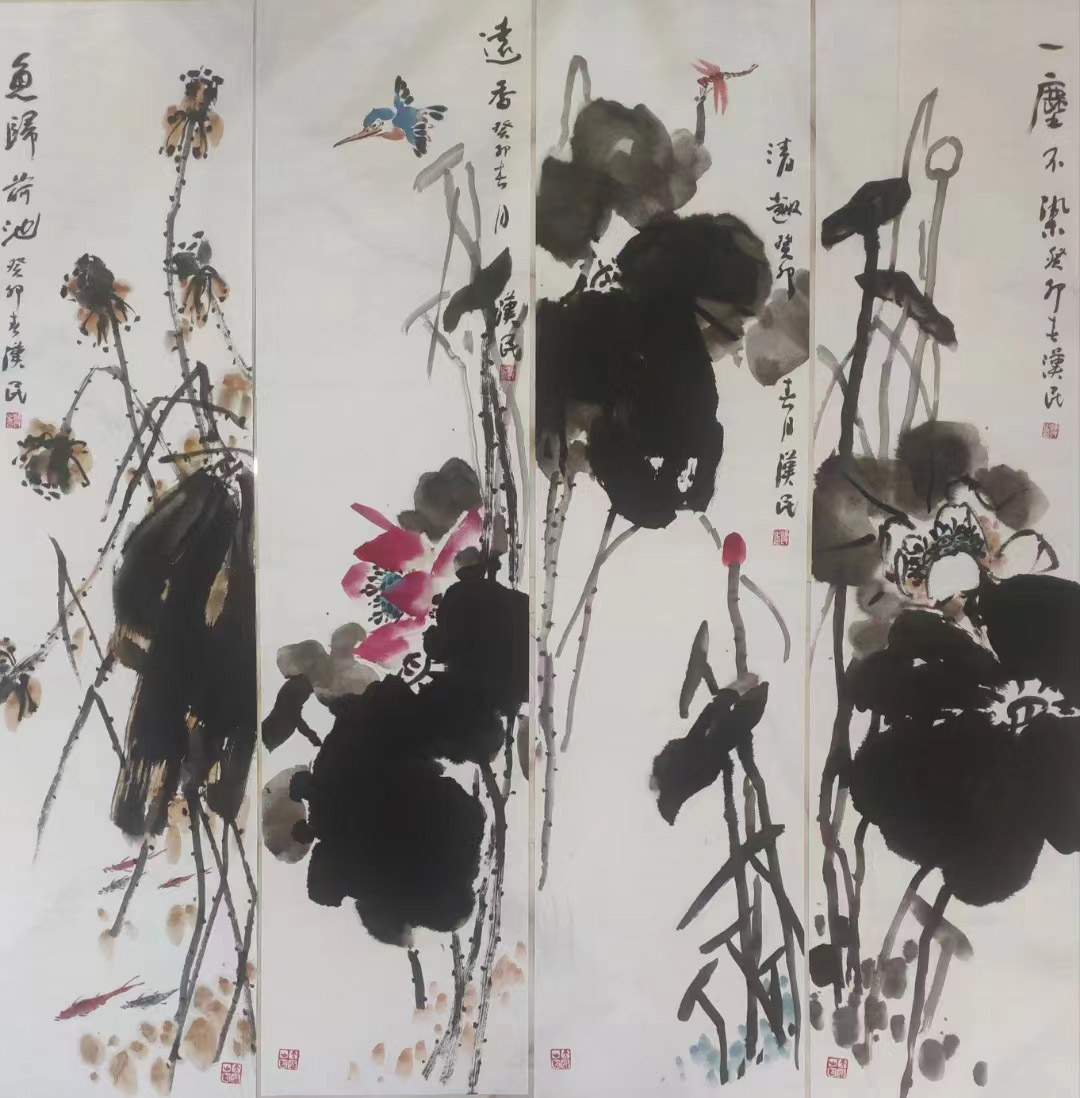 一塵不染癸卯春漢民
清趣癸卯春月漢民
遠香癸卯春月漢民
魚歸荷池癸卯春漢民